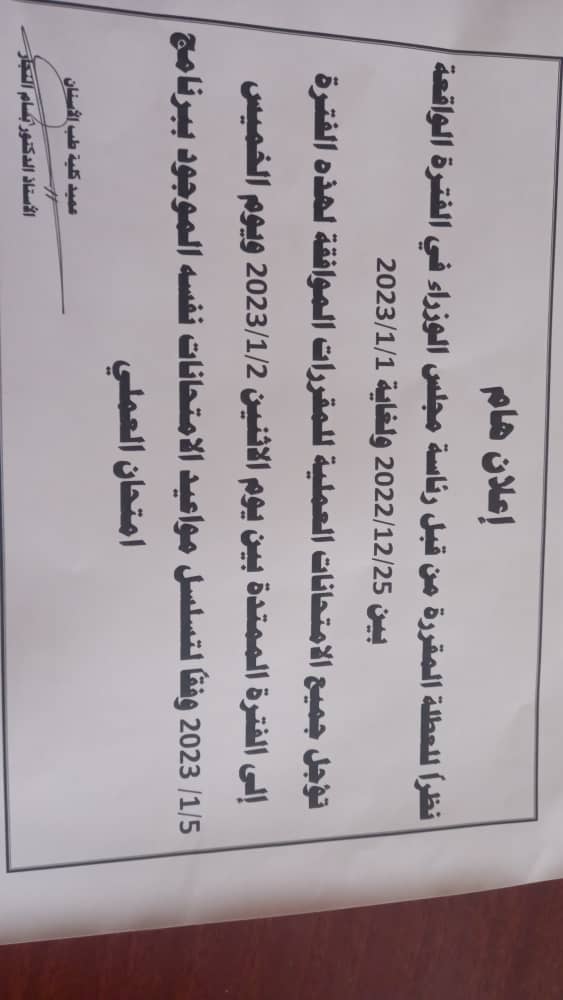 إعلان هام
نظراً للعطلة المقررة من قبل رئاسة مجلس الوزراء في الفترة الواقعة
بين 2022/12/25 ولغاية 2023/1/1
تؤجل جميع الامتحانات العملية للمقررات الموافقة لهذه الفترة
إلى الفترة الممتدة بين يوم الاثنين 2023/1/2 ويوم الخميس
2023 /1/5 وفقاً لتسلسل مواعيد الامتحانات نفسه الموجود ببرنامج
امتحان العملي
عميد كلية طب الأسنان
الأستاذ الدكتور بسام النجار